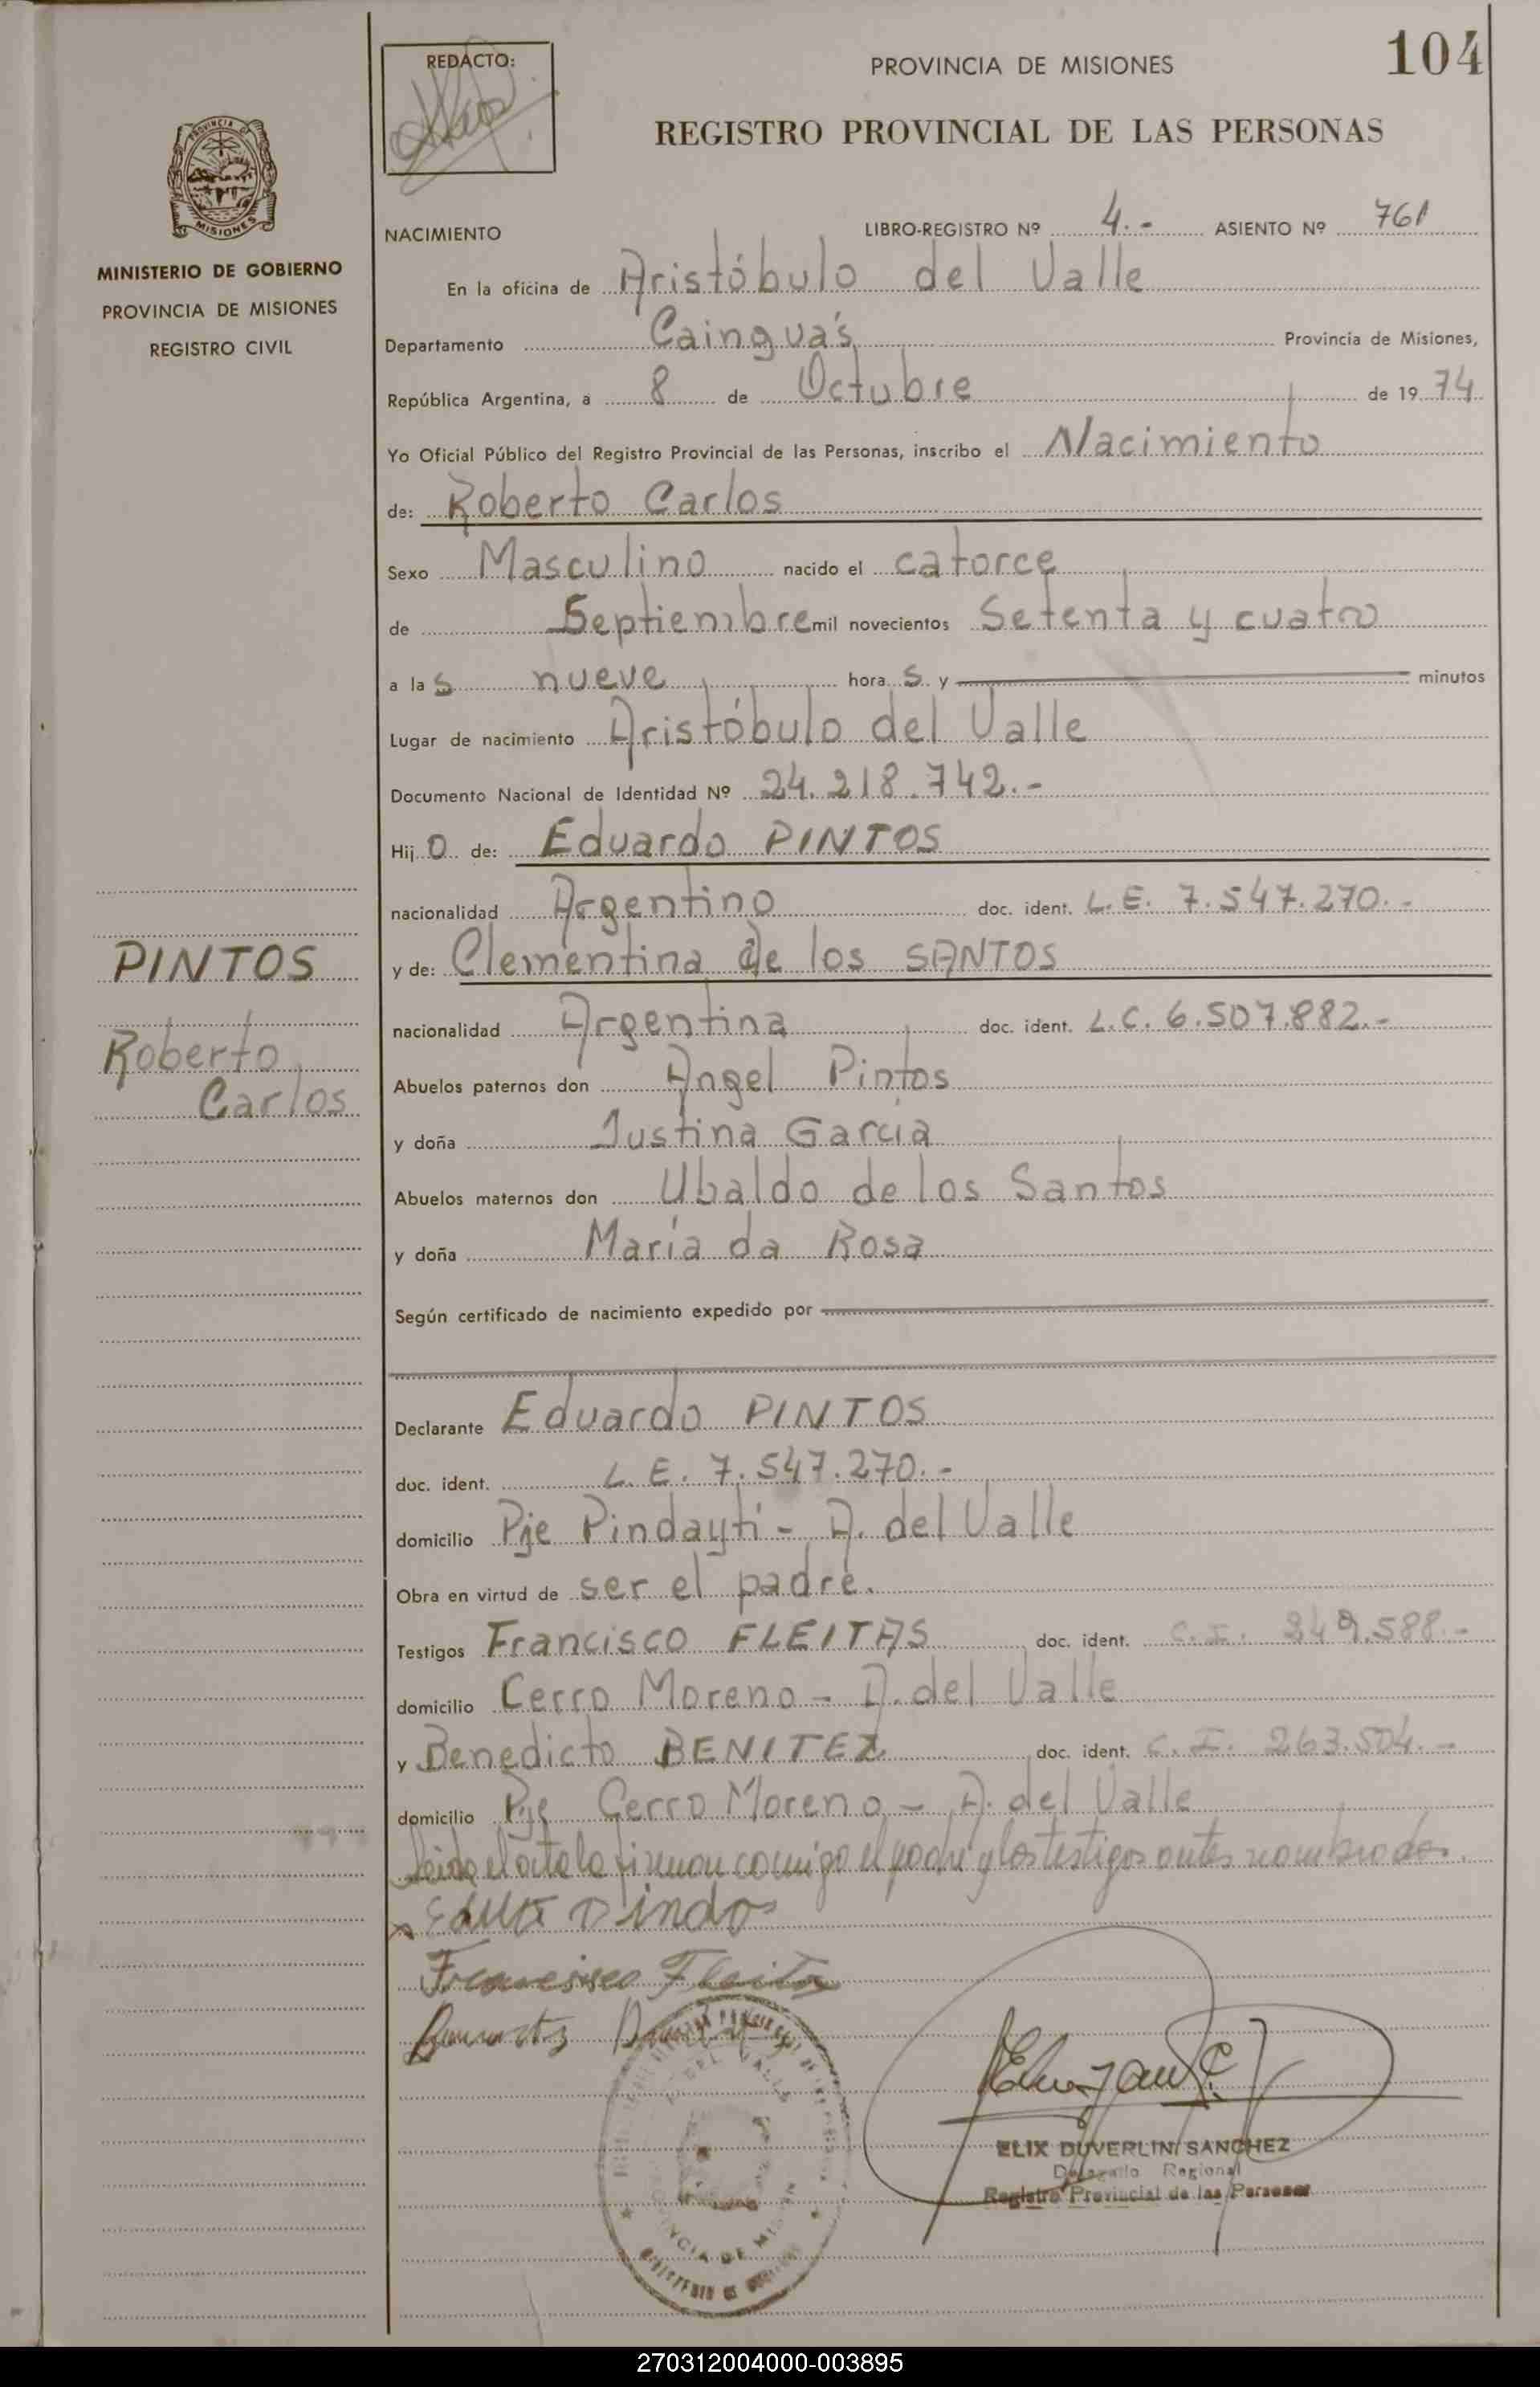 104
REDACTO:
PROVINCIA DE MISIONES
REGISTRO PROVINCIAL DE LAS PERSONAS
PROVINCIA DE
MISIONES
MINISTERIO DE GOBIERNO
PROVINCIA DE MISIONES
REGISTRO CIVIL
NACIMIENTO LIBRO-REGISTRO Nº 4.- ASIENTO Nº 761
En la oficina de Aristóbulo del Valle
Departamento Cainguás Provincia de Misiones,
República Argentina, a 8 de Octubre de 1974
Yo Oficial Público del Registro Provincial de las Personas, inscribo el Nacimiento
de: Roberto Carlos
Sexo Masculino nacido el catorce
de Septiembre mil novecientos Setenta y cuatro
a las nueve horas y minutos
Lugar de nacimiento Aristóbulo del Valle
Documento Nacional de Identidad Nº 24.218.742.-
Hijo de: Eduardo PINTOS
nacionalidad Argentino doc. ident. L.E. 7.547.270.-
y de: Clementina de los SANTOS
nacionalidad Argentina doc. ident. L.C. 6.507.882.-
Abuelos paternos don Angel Pintos
y doña Justina García
Abuelos maternos don Ubaldo de los Santos
y doña María da Rosa
Según certificado de nacimiento expedido por
PINTOS
Roberto
Carlos
Declarante Eduardo PINTOS
doc. ident. L.E. 7.547.270.-
domicilio Pje Pindaytí - A. del Valle
Obra en virtud de ser el padre.
Testigos Francisco FLEITAS doc. ident. C.I. 349.588.-
domicilio Cerro Moreno - A. del Valle
y Benedicto BENITEZ doc. ident. C.I. 263.504.-
domicilio Pje Cerro Moreno - A. del Valle
Leida el acta la firman conmigo el padre y los testigos antes nombrados.
Francisco Fleita
DEL VALLE
PROVINCIA DE MISIONES
MINISTERIO DE GOBIERNO
ELIX DUVERLIN SANCHEZ
Delegado Regional
Registro Provincial de las Personas
270312004000-003895